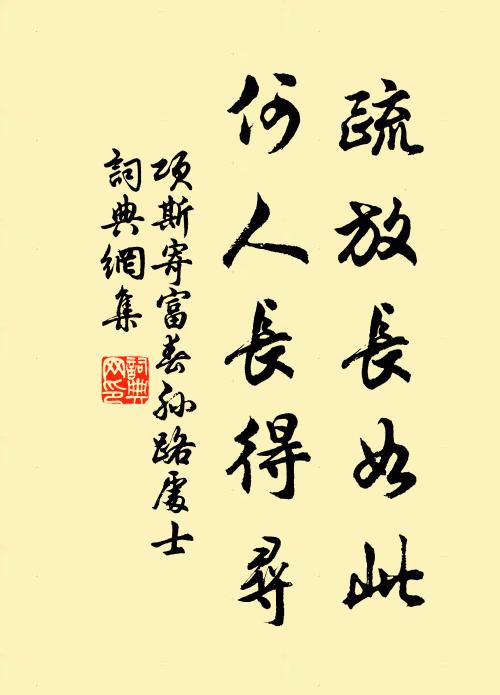 疏放長如此
何人長得尋
項斯寄富春孙路處士
詞典網集
詞典
网印